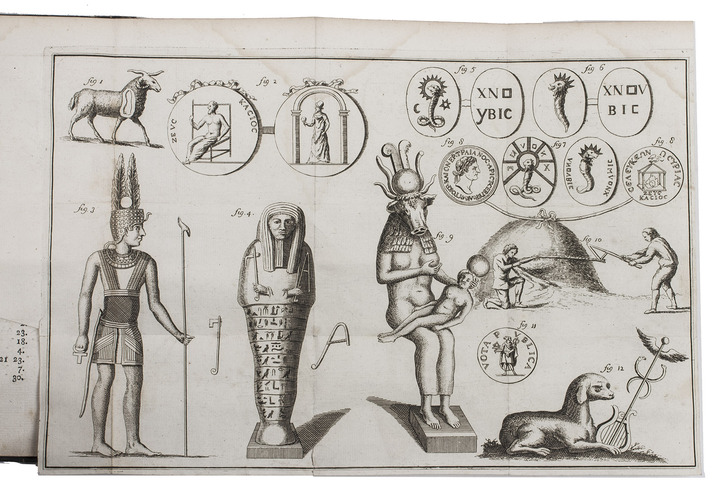 fig 1
fig 2
ΖΕΥC
ΚΑCΙΟC
fig 5
ΧΝΟ
ΥΒΙC
fig 6
ΧΝΟΥ
ΒΙC
fig 8
fig 7
fig 8
CΕΛΕΥΚΕΩΝ
CΥΡΙΑC
ΖΕΥC
ΚΑCΙΟC
fig. 3
fig. 4.
fig 9
fig 10
fig 11
VOTA PVBLICA
fig 12
23.
18.
4.
21 23.
7.
30.